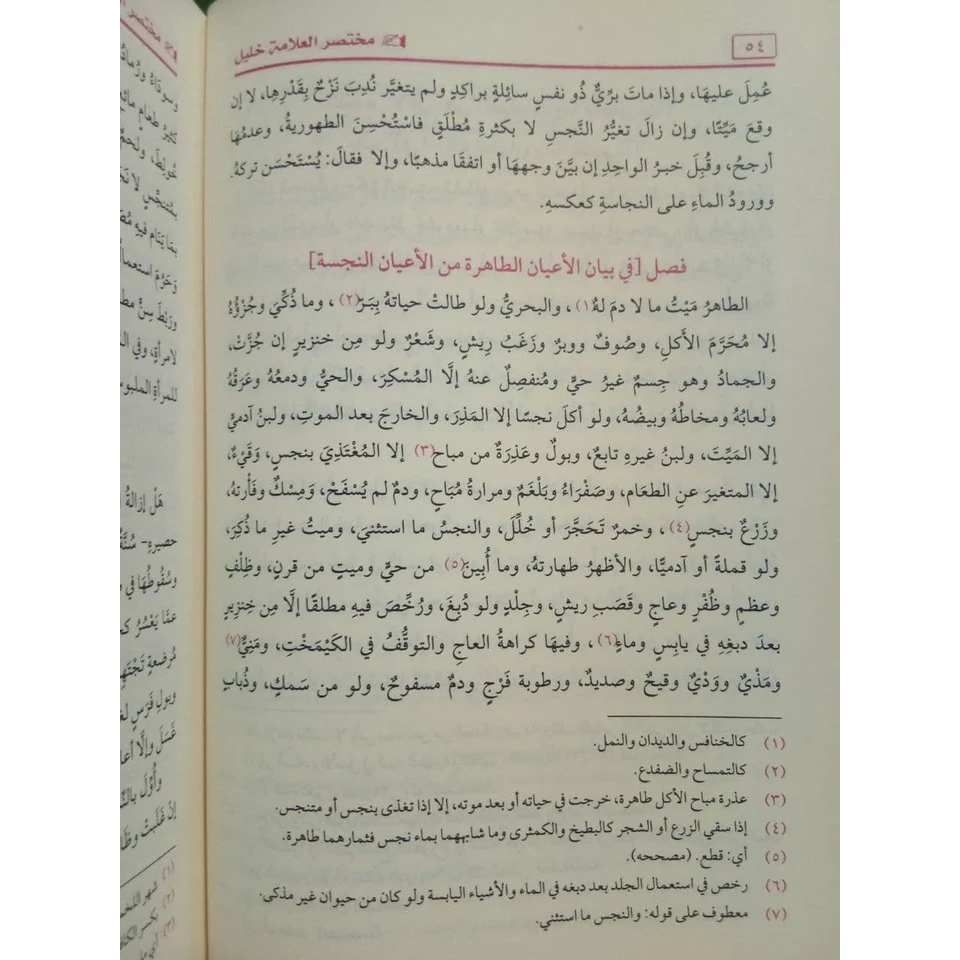 ٥٤
مختصر العلامة خليل
عُمِلَ عليهَا، وإذا ماتَ برِّيٌّ ذُو نفسٍ سائِلةٍ براكِدٍ ولم يتغيَّر نُدِبَ نَزْحٌ بِقَدْرِهِا، لا إن
وقعَ مَيِّتًا، وإن زالَ تغيُّرُ النَّجسِ لا بكثرةِ مُطْلَقٍ فاسْتُحْسِنَ الطهوريةُ، وعدمُهَا
أرجحُ، وقُبِلَ خبرُ الواحِدِ إن بيَّنَ وجههَا أو اتفقَا مذهبًا، وإلا فقالَ: يُسْتَحْسَن تركهُ.
وورودُ الماءِ على النجاسةِ كعكسهِ.
فصل [في بيان الأعيان الطاهرة من الأعيان النجسة]
الطاهرُ مَيْتُ ما لا دمَ لهُ(١)، والبحريُّ ولو طالتْ حياتهُ بِبَرّ(٢)، وما ذُكِّيَ وجُزْؤُهُ
إلا مُحَرَّمَ الأَكلِ، وصُوفٌ ووبرٌ وزَغَبُ رِيشٍ، وشَعْرٌ ولو مِن خنزيرٍ إن جُزَّتْ،
والجمادُ وهو جِسمٌ غيرُ حيٍّ ومُنفصِلٌ عنهُ إلَّا المُسْكِرَ، والحيُّ ودمعُهُ وعَرَقُهُ
ولعابُهُ ومخاطُهُ وبيضُهُ، ولو أكلَ نجسًا إلا المَذِرَ، والخارجَ بعد الموتِ، ولبنُ آدميٍّ
إلا المَيِّتَ، ولبنُ غيرهِ تابعٌ، وبولٌ وعَذِرَةٌ من مباحٍ(٣) إلا المُغْتَذِيَ بنجسٍ، وَقَيْءٌ،
إلا المتغيرَ عنِ الطعَام، وصَفْرَاءُ وبَلْغَمٌ ومرارةُ مُبَاحٍ، ودمٌ لم يُسْفَحْ، وَمِسْكٌ وفَأْرتهُ،
وزَرْعٌ بنجسٍ(٤)، وخمرٌ تَحَجَّرَ أو خُلِّلَ، والنجسُ ما استثنيَ، وميتُ غيرِ ما ذُكِرَ،
ولو قملةً أو آدميًّا، والأظهرُ طهارتهُ، وما أُبِينَ(٥) من حيٍّ وميتٍ من قرنٍ، وظِلْفٍ
وعظمٍ وظُفْرٍ وعاجٍ وقَصَبِ ريشٍ، وجِلْدٍ ولو دُبِغَ، ورُخِّصَ فيهِ مطلقًا إلَّا مِن خِنزيرٍ
بعدَ دبغِهِ في يابِسٍ وماءٍ(٦)، وفيهَا كراهةُ العاجِ والتوقُّفُ في الكَيْمَخْتِ، ومَنِيٌّ(٧)
ومَذْيٌ ووَدْيٌ وقيحٌ وصديدٌ، ورطوبة فَرْجٍ ودمٌ مسفوحٌ، ولو من سَمكٍ، وذُبابٍ
(١) كالخنافس والديدان والنمل.
(٢) كالتمساح والضفدع.
(٣) عذرة مباح الأكل طاهرة، خرجت في حياته أو بعد موته، إلا إذا تغذى بنجس أو متنجس.
(٤) إذا سقي الزرع أو الشجر كالبطيخ والكمثرى وما شابههما بماء نجس فثمارهما طاهرة.
(٥) أي: قطع. (مصححه).
(٦) رخص في استعمال الجلد بعد دبغه في الماء والأشياء اليابسة ولو كان من حيوان غير مذكى.
(٧) معطوف على قوله: والنجس ما استثني.